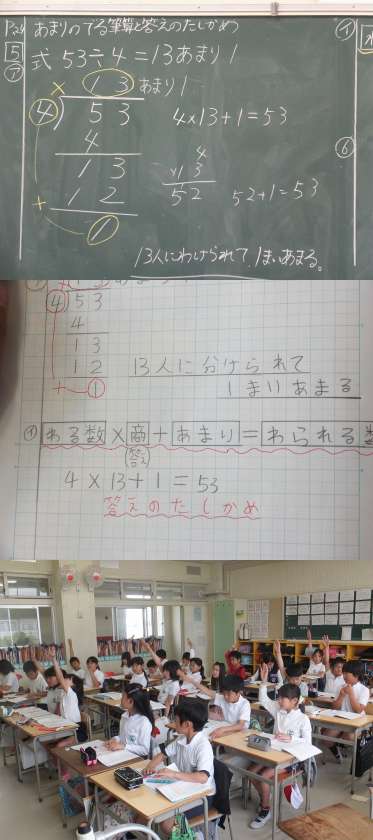 あまりのでる筆算と答えのたしかめ
5 式 53÷4=13あまり1
ア
× 13 あまり1
4)53
4
13
12
+ 1
4×13+1=53
4
×13
52
52+1=53
13人にわけられて、1まいあまる。
イ
6
4)53
4
13
12
+ 1
13人に分けられて
1まいあまる
イ わる数×商+あまり=われる数
(答え)
4×13+1=53
答えのたしかめ